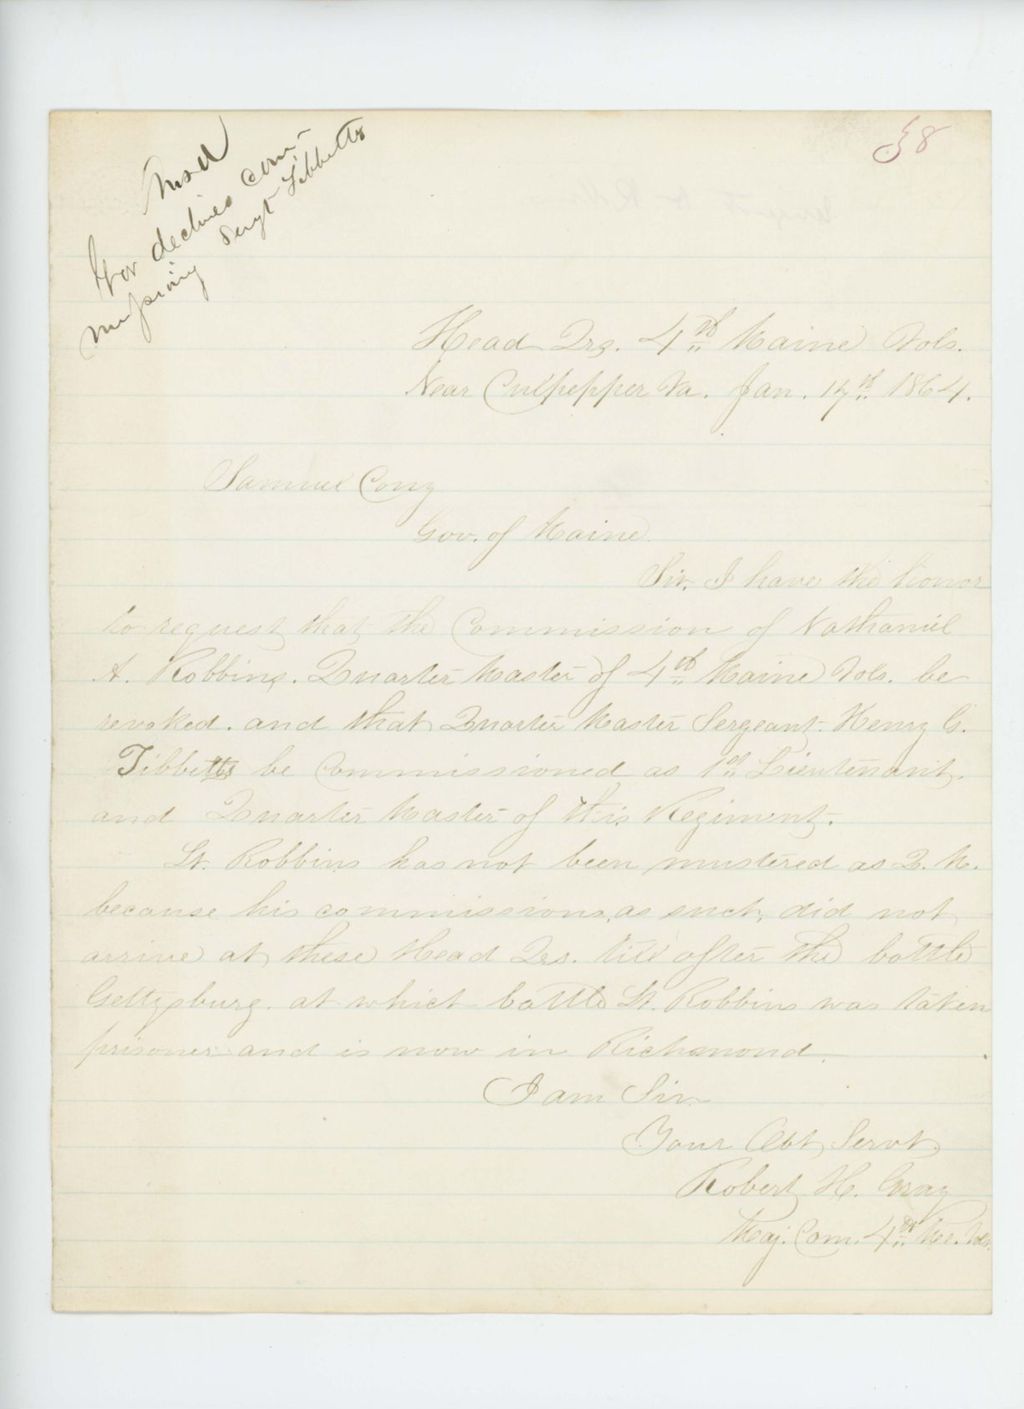 38
Ansd
Gov declines com-
missioning Sergt Tibbetts
Head Qrs. 4th Maine Vols.
Near Culpepper Va. Jan. 17th 1864.
Samuel Cony
Gov. of Maine
Sir, I have the honor
to request that the Commission of Nathaniel
A. Robbins. Quarter Master of 4th Maine Vols. be
revoked. and that Quarter Master Sergeant Henry G.
Tibbetts be Commissioned as 1st Lieutenant
and Quarter Master of this Regiment.
Lt. Robbins has not been mustered as Q. M.
because his commissions, as such, did not
arrive at these Head Qrs. till after the battle
Gettysburg. at which battle Lt. Robbins was taken
prisoner and is now in Richmond.
I am Sir
Your Obt Servt
Robert H. Gray
Maj. Com. 4th Me. Vols.